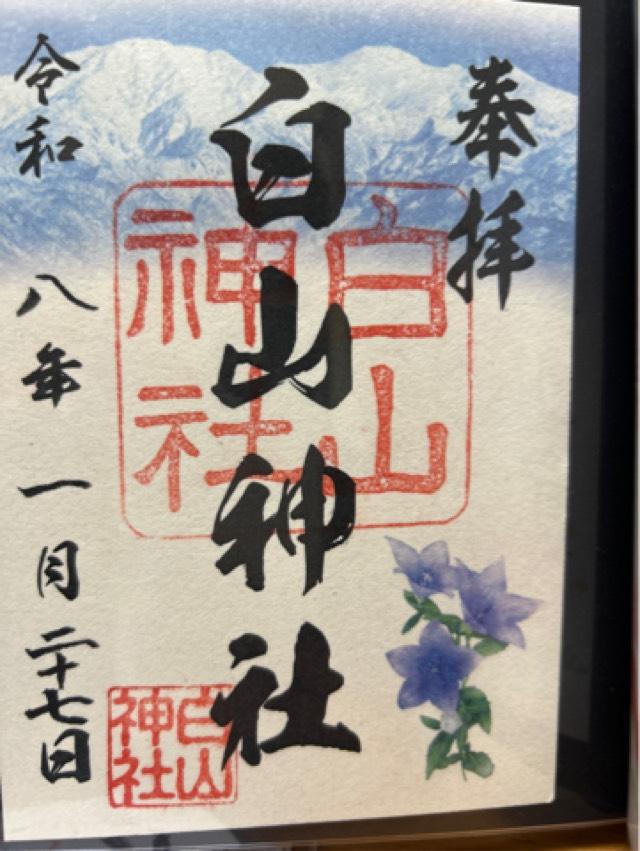 奉拝
白山神社
白山神社
白山神社
令和八年一月二十七日